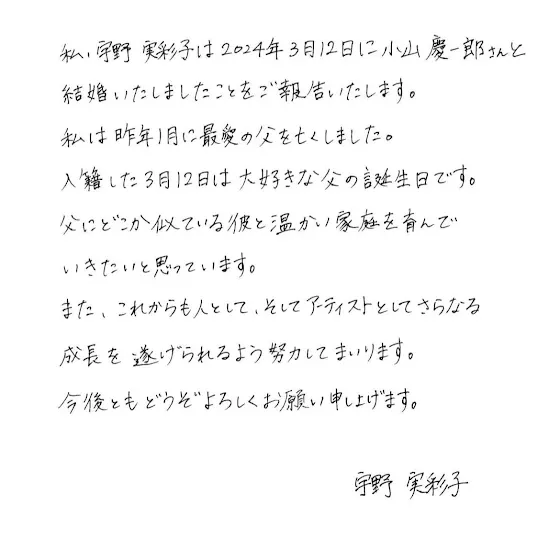 私、宇野 実彩子は2024年3月12日に小山 慶一郎さんと
結婚いたしましたことをご報告いたします。
私は昨年1月に最愛の父を亡くしました。
入籍した3月12日は大好きな父の誕生日です。
父にどこか似ている彼と温かい家庭を育んで
いきたいと思っています。
また、これからも人として、そしてアーティストとしてさらなる
成長を遂げられるよう努力してまいります。
今後ともどうぞよろしくお願い申し上げます。
宇野 実彩子